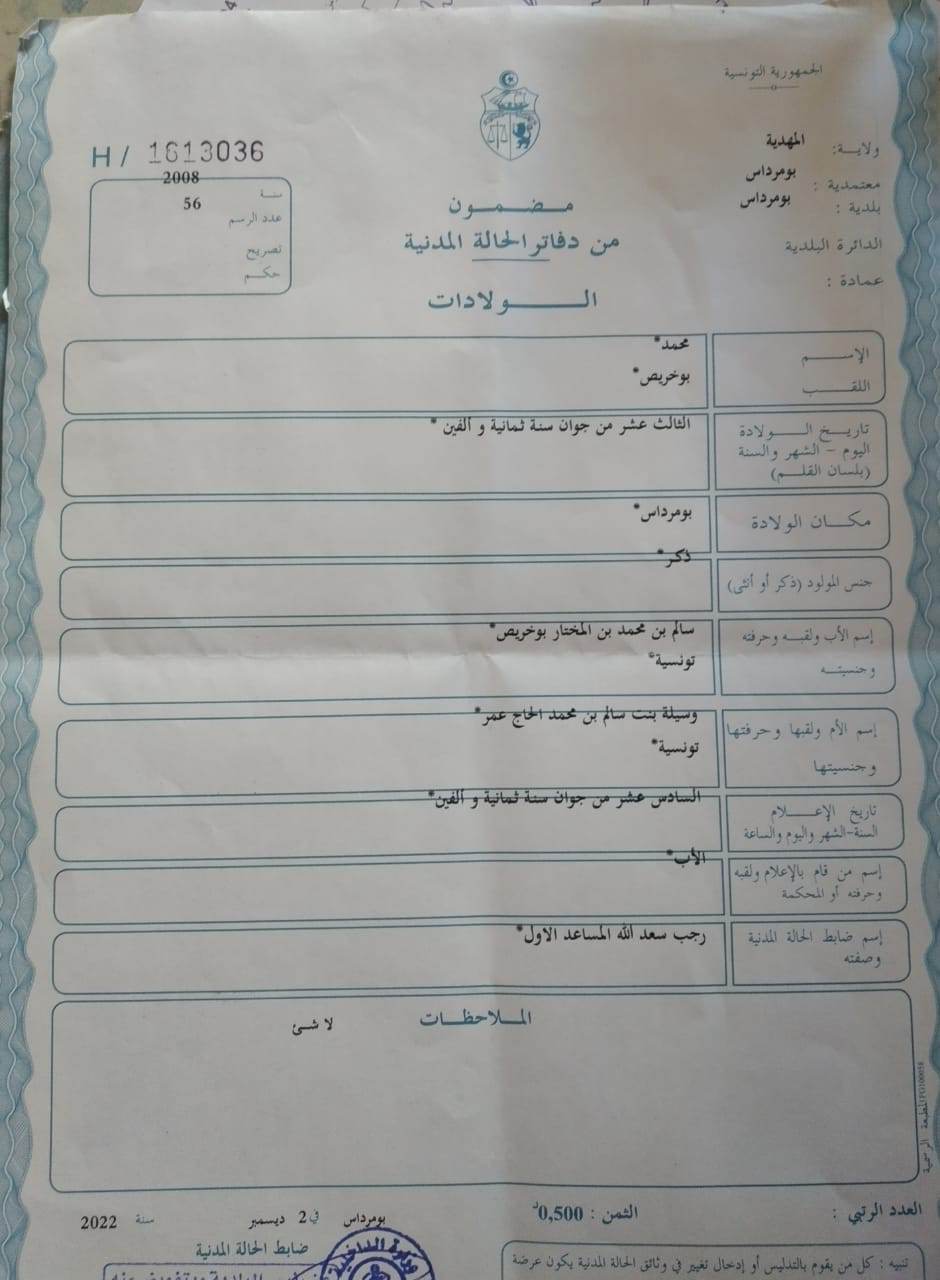 الجمهورية التونسية
ولايـــة: المهدية
معتمدية : بومرداس
بلدية : بومرداس
الدائرة البلدية
عمادة :
H / 1613036
سنة 2008
عدد الرسم 56
تصريح
حكـم
مـضـمـــون
من دفاتر الحالة المدنية
الـــولادات
الإســـم محمد*
اللقـــب بوخريص*
تاريـخ الـــولادة الثالث عشر من جوان سنة ثمانية و ألفين *
اليوم - الشهر والسنة
(بلسان القلـم)
مكـــان الولادة بومرداس*
جنس المولود (ذكر أو أنثى) ذكر*
إسم الأب ولقبـه وحرفته سالم بن محمد بن المختار بوخريص*
وجنسيتـــه تونسية*
إسم الأم ولقبها وحرفتها وسيلة بنت سالم بن محمد الحاج عمر*
وجنسيتها تونسية*
تاريخ الإعـــلام السادس عشر من جوان سنة ثمانية و ألفين*
السنة-الشهر واليوم والساعة
إسم من قام بالإعلام ولقبه الأب*
وحرفته أو المحكمة
إسم ضابط الحالة المدنية رجب سعد الله المساعد الاول*
وصفته
المـلاحظـــات
لا شئ
المطبعة الرسمية PG100058
العدد الرتبي :
الثمن : 0,500د
بومرداس في 2 ديسمبر سنة 2022
ضابط الحالة المدنية
وزارة الداخلية
تنبيه : كل من يقوم بالتدليس أو إدخال تغيير في وثائق الحالة المدنية يكون عرضة